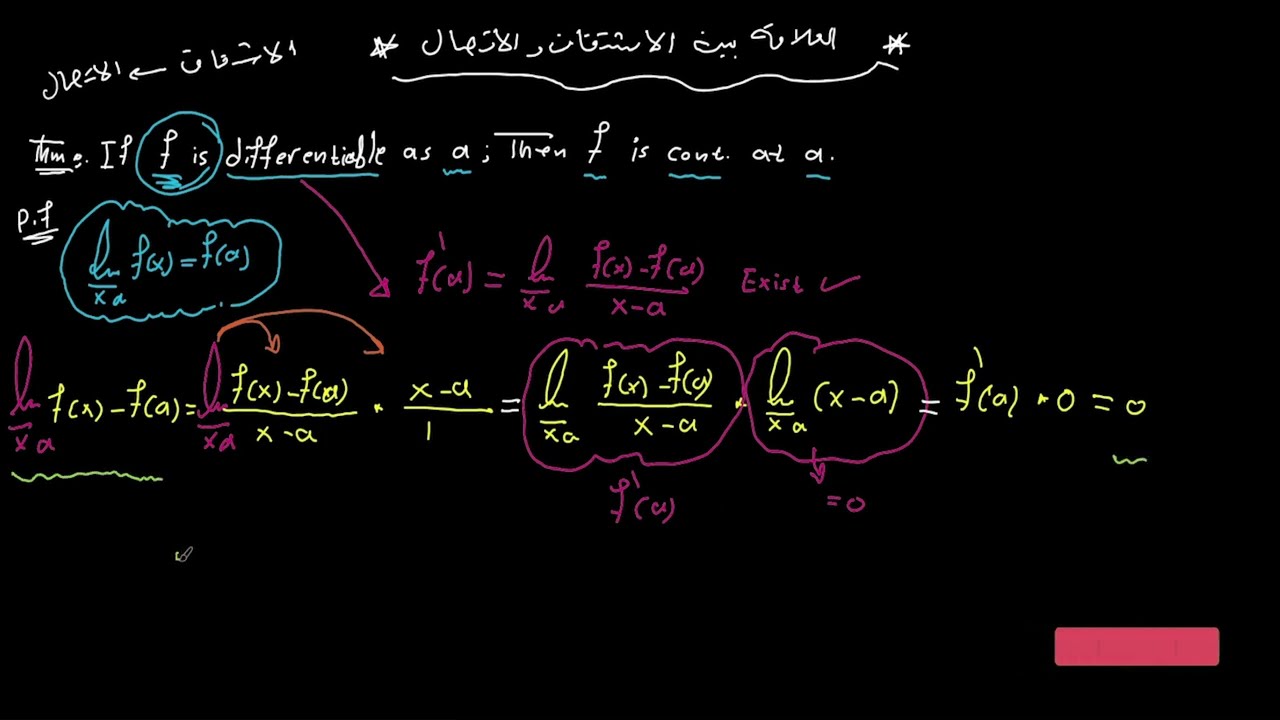 * العلاقة بين الاشتقاق والاتصال *
الاشتقاق ← الاتصال
Thm: If f is differentiable as a; Then f is cont. at a.
p.f
lim x→a f(x) = f(a)
f'(a) = lim x→a (f(x) - f(a))/(x - a) Exist ✓
lim x→a f(x) - f(a) = lim x→a (f(x) - f(a))/(x - a) • (x - a)/1 = lim x→a (f(x) - f(a))/(x - a) • lim x→a (x - a) = f'(a) • 0 = 0
f'(a)
= 0